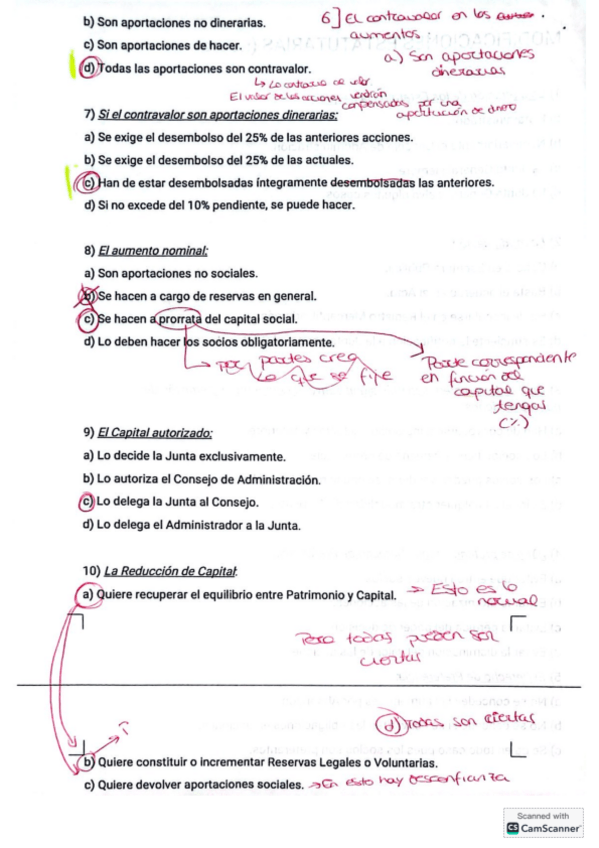 b) Son aportaciones no dinerarias.
6] El contravalor en los
aumentos.
c) Son aportaciones de hacer.
a) Son aportaciones
dinerarias
d) Todas las aportaciones son contravalor.
↳ Lo contrario de valor
El valor de las acciones vendrán
compensados por una
aportación de dinero
7) Si el contravalor son aportaciones dinerarias:
a) Se exige el desembolso del 25% de las anteriores acciones.
b) Se exige el desembolso del 25% de las actuales.
c) Han de estar desembolsadas íntegramente desembolsadas las anteriores.
d) Si no excede del 10% pendiente, se puede hacer.
8) El aumento nominal:
a) Son aportaciones no sociales.
b) Se hacen a cargo de reservas en general.
c) Se hacen a prorrata del capital social.
d) Lo deben hacer los socios obligatoriamente.
→ por partes creo
lo que se fije
Parte correspondiente
en función del
capital que
tengas
(%)
9) El Capital autorizado:
a) Lo decide la Junta exclusivamente.
b) Lo autoriza el Consejo de Administración.
c) Lo delega la Junta al Consejo.
d) Lo delega el Administrador a la Junta.
10) La Reducción de Capital:
a) Quiere recuperar el equilibrio entre Patrimonio y Capital. → Esto es lo
normal
Pero todas pueden ser
ciertas
d) Todas son ciertas
b) Quiere constituir o incrementar Reservas Legales o Voluntarias.
c) Quiere devolver aportaciones sociales. → En esto hay desconfianza
Scanned with
CS CamScanner